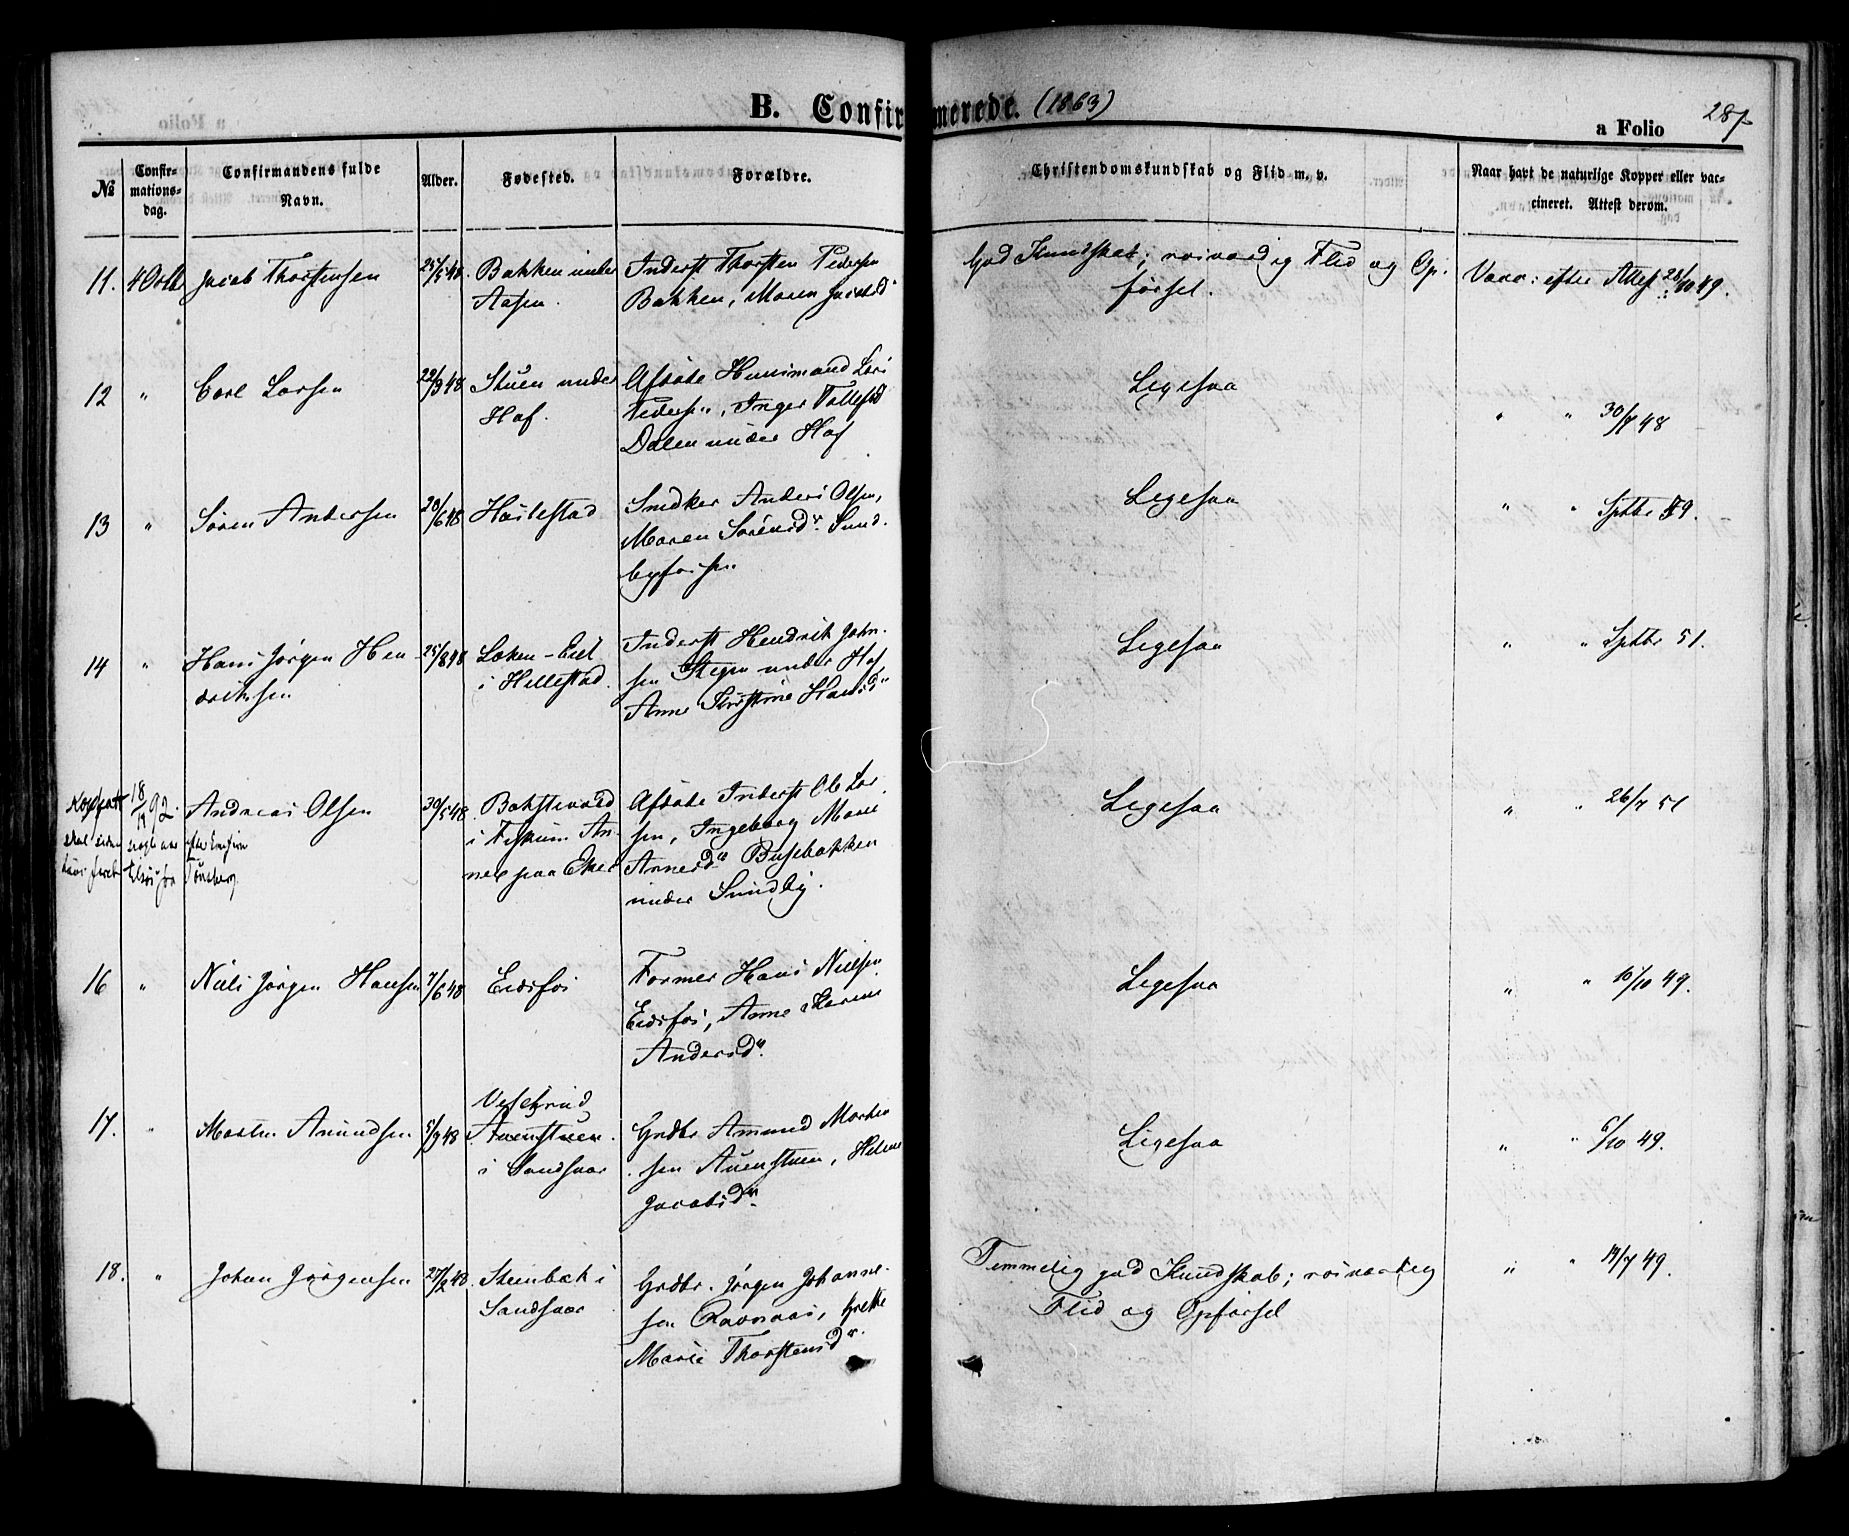 B. Confirmerede. (1863)
a Folio 287
№
Confir-
mations-
dag.
Confirmandens fulde
Navn.
Alder.
Fødested.
Forældre.
Christendomskundskab og Flid m. v.
Naar havt de naturlige Kopper eller vac-
cineret. Attest derom.
11. 4 Octb Jacob Thorstensen 25/5 48 Bakken under
Aasen.
Inderst Thorsten Pedersen
Bakken, Maren Jacobsdr
God Kundskab; roisværdig Flid og Op-
førsel.
Vacc: efter Attest 28/10 49.
12 " Carl Larsen 22/3 48 Stuen under
Hof.
Afdøde Huusmand Lars
Pedersen, Inger Tollefsd
Dalen under Hof
Ligesaa
" " 30/7 48
13 " Søren Andersen 20/6 48 Haslestad
Snedker Anders Olsen,
Maren Sørensdr. Sund-
byfossen
Ligesaa
" " Sptbr 49.
14 " Hans Jørgen Hen
driksen
25/8 48 Løken-Eiet
i Hillestad.
Inderst Hendrik John-
sen Stegen under Hof
Anne Kirstine Hansdr
Ligesaa
" " Sptbr 51.
18/11 92. Andreas Olsen
Tønsberg.
30/5 48 Bakstevold
i Fiskum An-
nex paa Eker
Afdøde Inderst Ole Lar-
sen, Ingeborg Marie
Arnesdr Busebakken
under Sundby.
Ligesaa
" " 26/7 51
16 " Niels Jørgen Hansen 7/6 48 Eidsfos
Former Hans Nielsen
Eidsfos, Anne Karine
Andersdr.
Ligesaa
" " 10/10 49.
17. " Morten Amundsen 5/9 48
Auenstuen
i Sandsvær
Grdbr Amund Morten
sen Auenstuen, Helene
Jacobsdr.
Ligesaa
" " 6/10 49.
18. " Johan Jørgensen 27/2 48. Steenbæk i
Sandsvær
Grdbr. Jørgen Johanne-
sen Ravnaas, Grethe
Marie Thorstensdr.
Temmelig god Kundskab; roisværdig
Flid og Opførsel
" " 14/7 49.